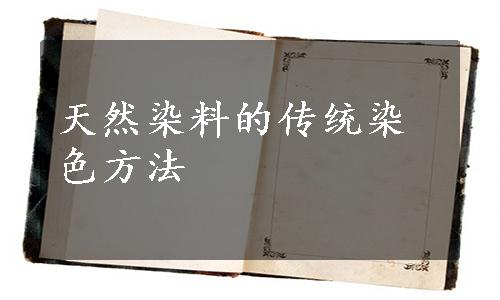 天然染料的传统染
色方法